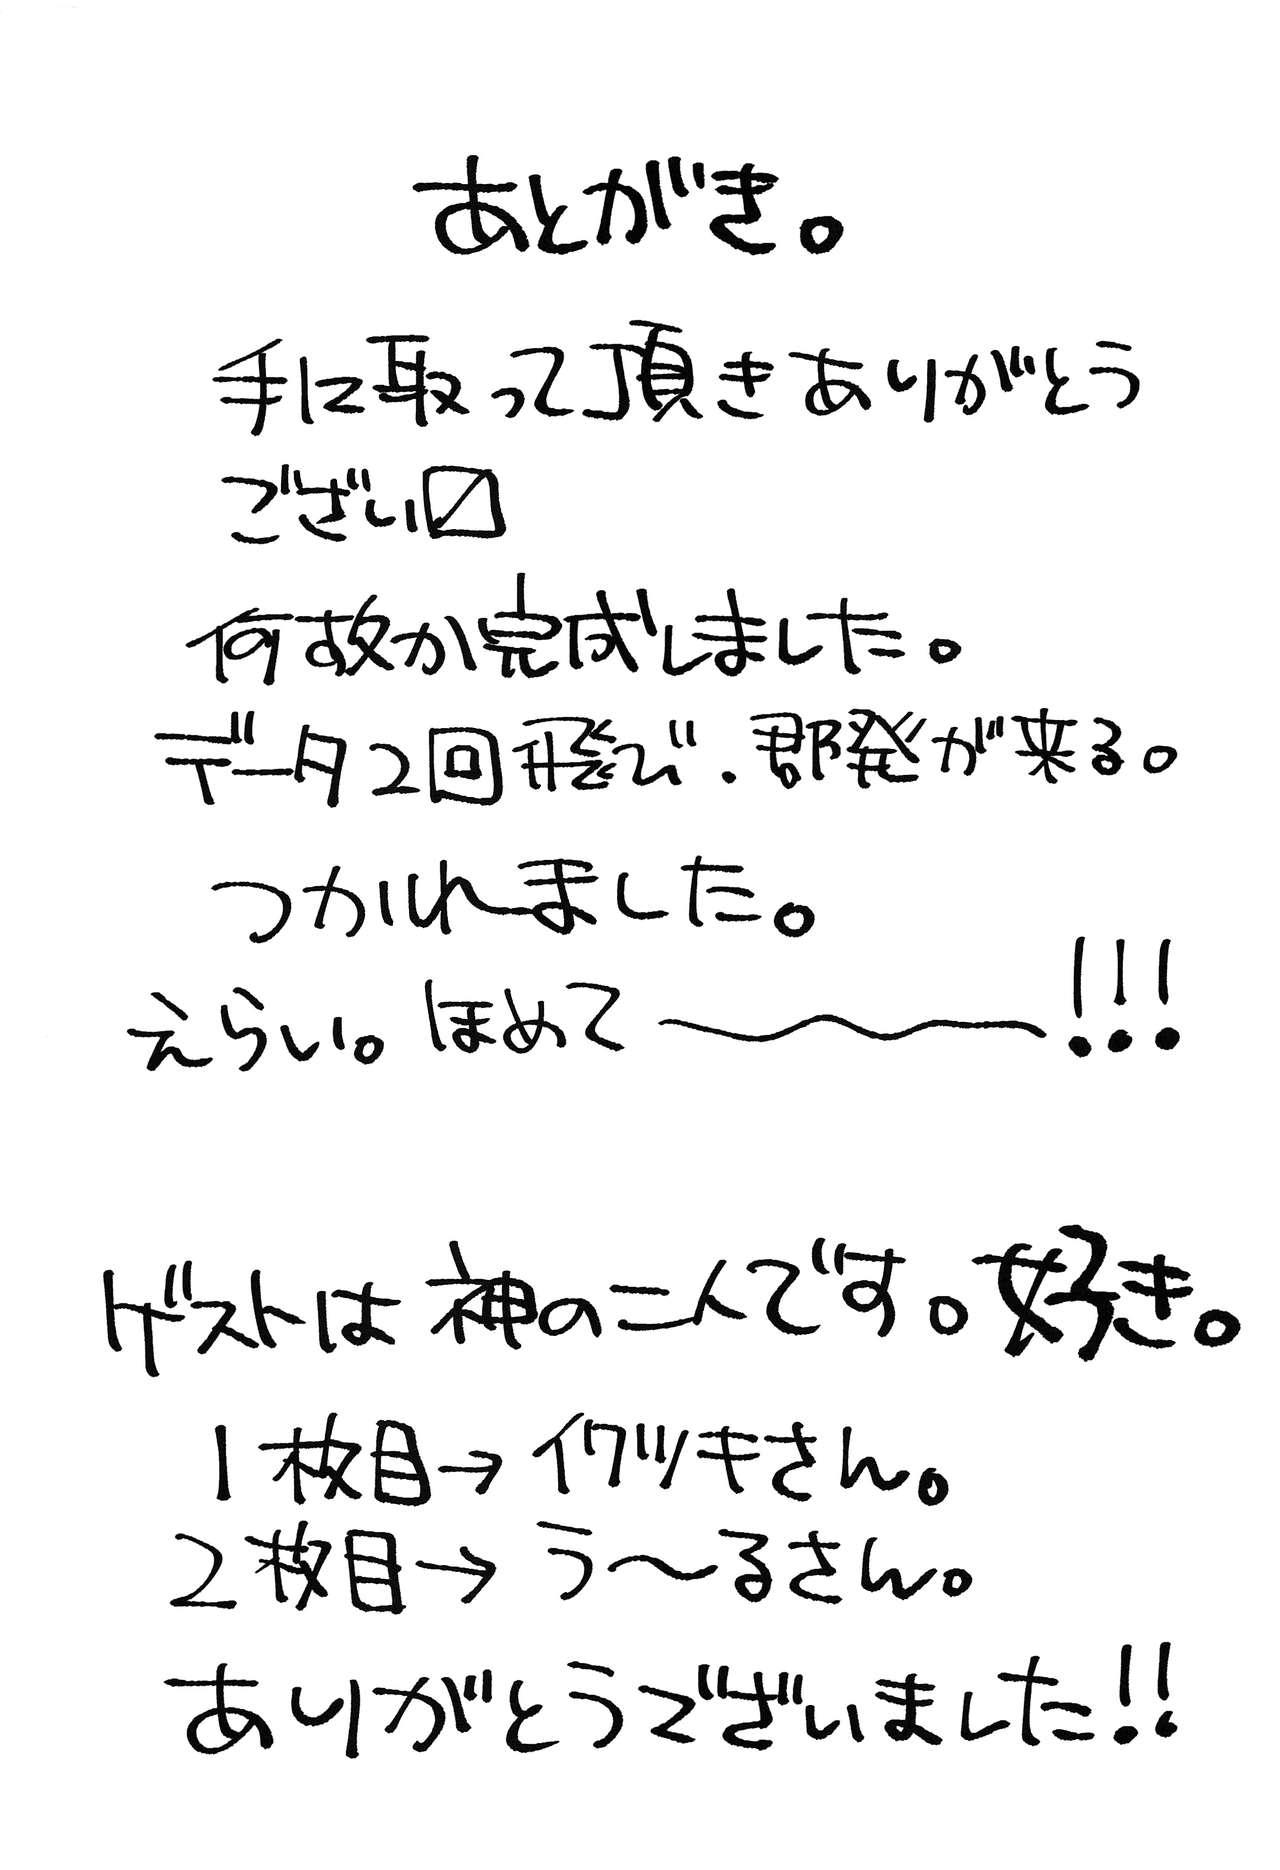 あとがき。
手に取って頂きありがとう
ござい〼
何故か完成しました。
データ2回飛び.郡発が来る。
つかれました。
えらい。ほめて〜〜〜!!!
ゲストは神の二人です。好き。
1枚目→イワツキさん。
2枚目→う〜るさん。
ありがとうございました!!